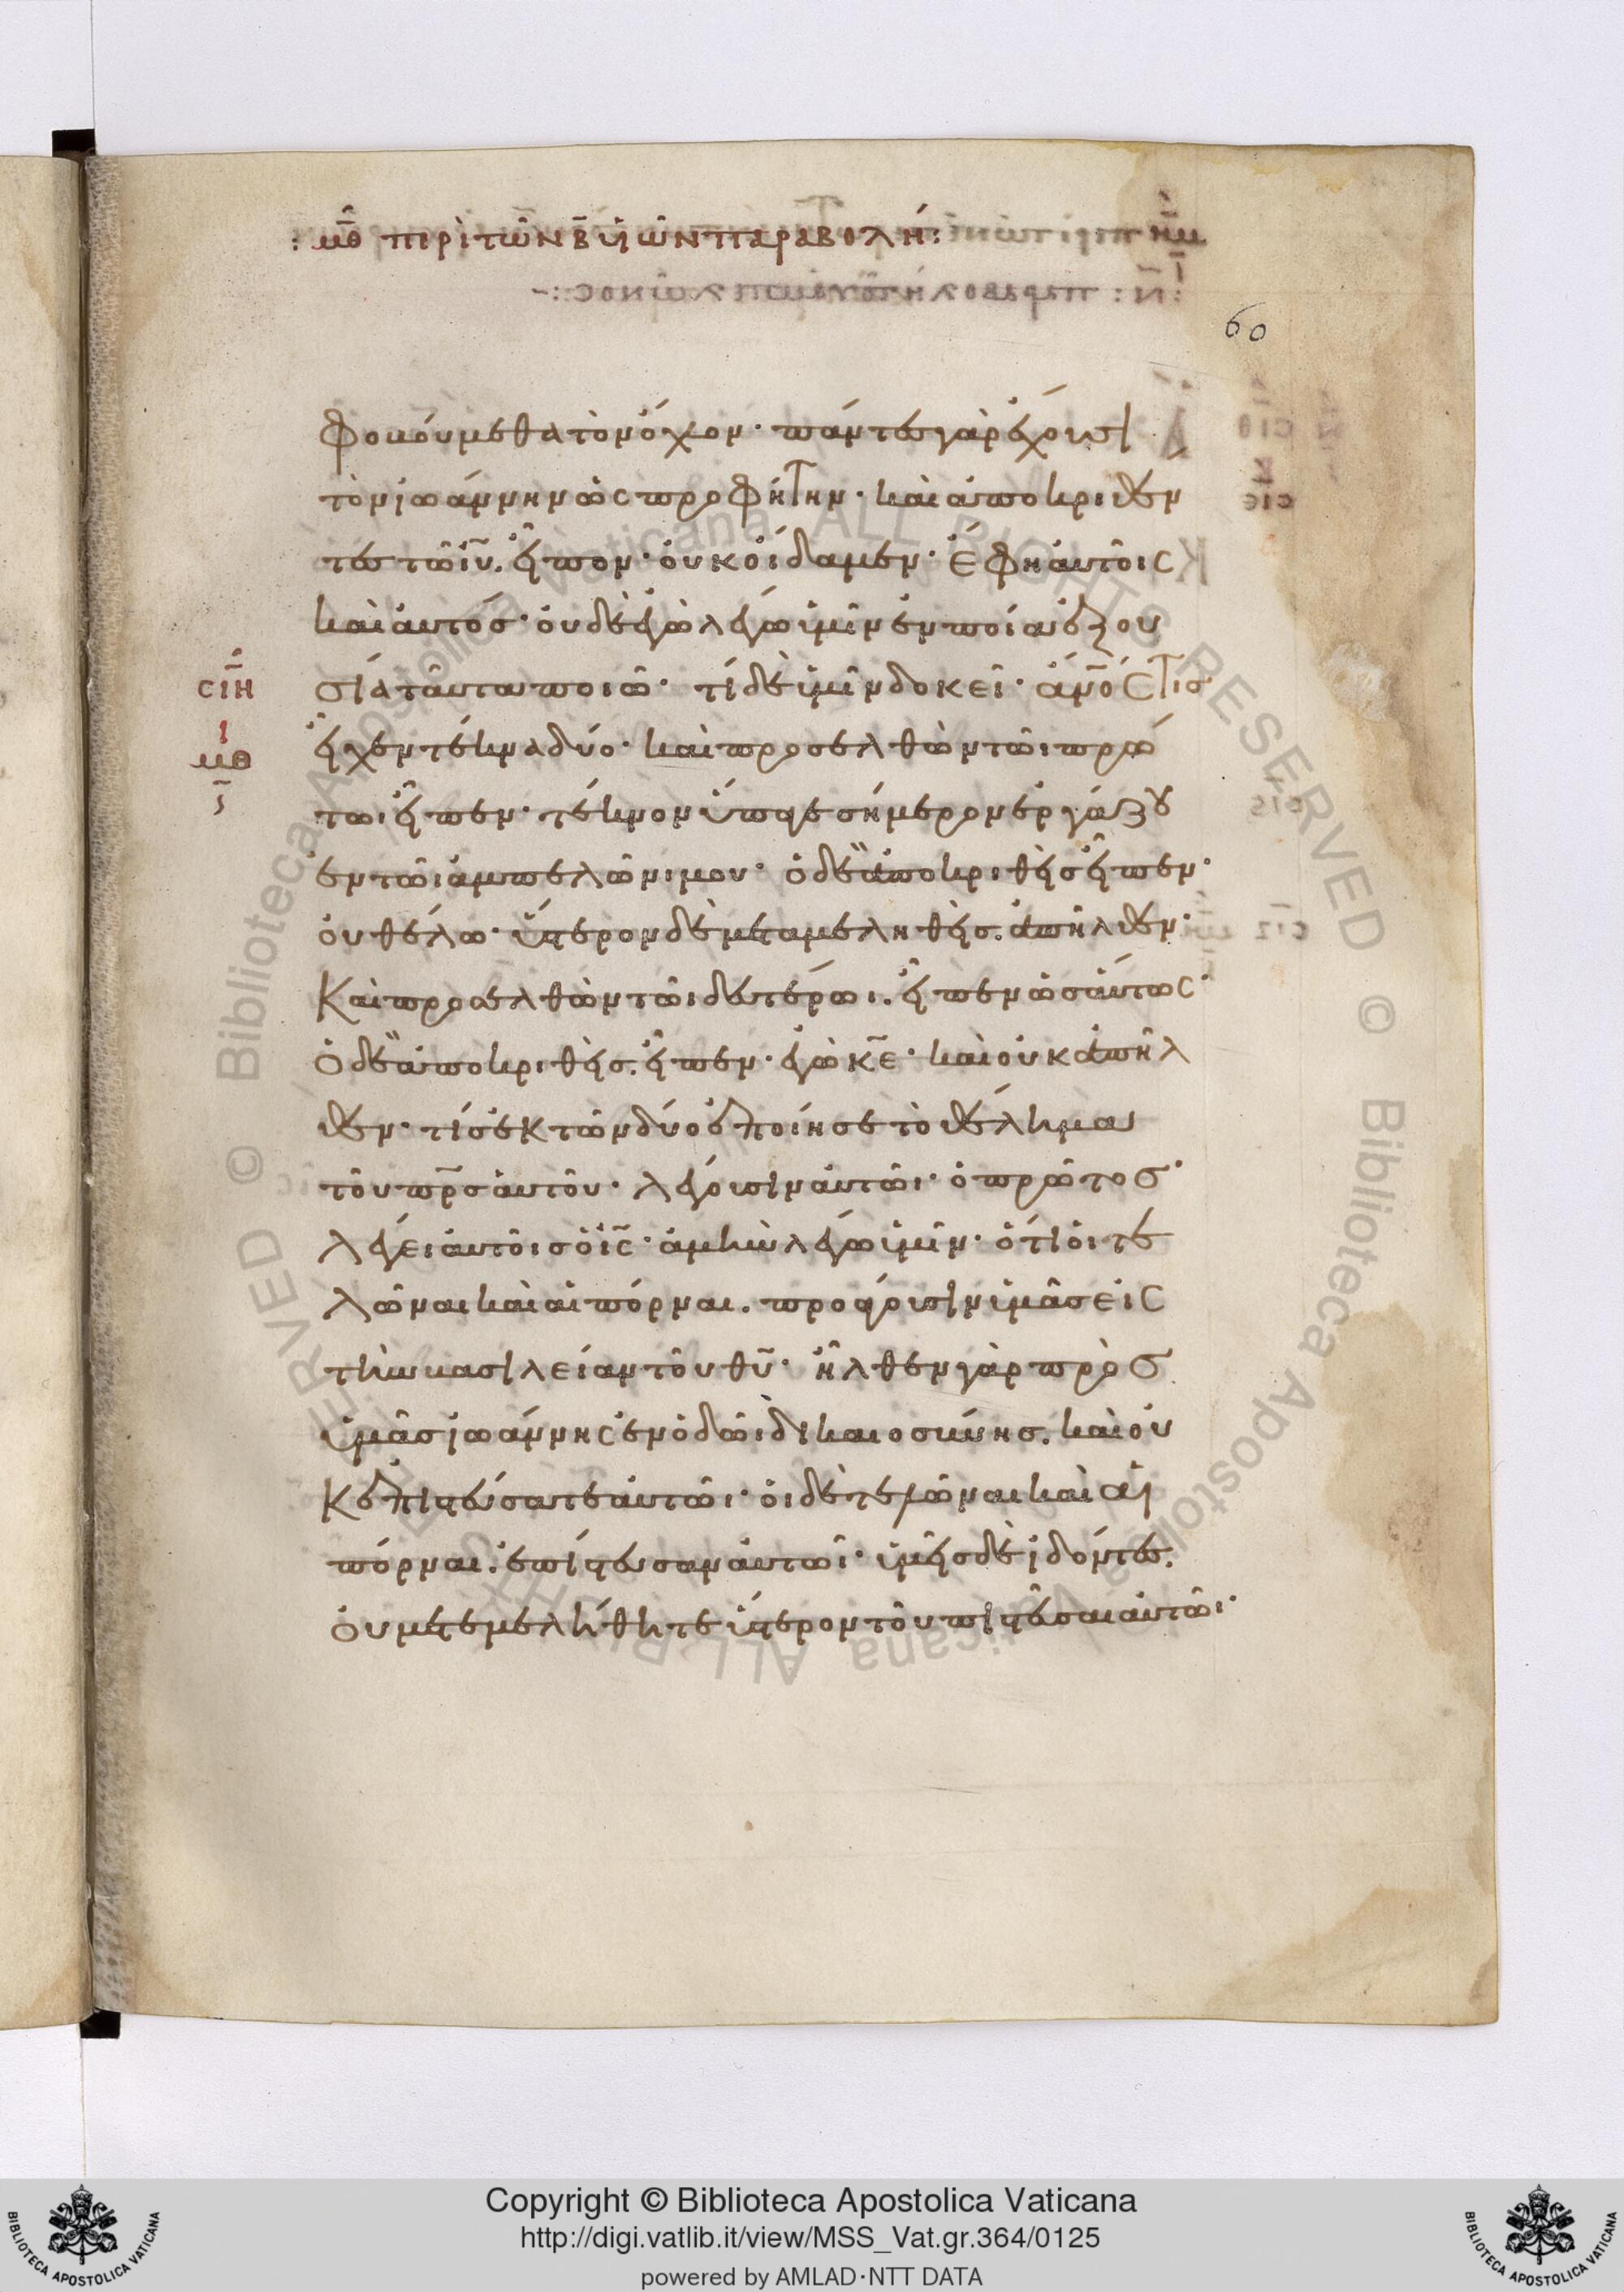 : μ̅θ̅ περὶ τῶν β̅ ὑῶν παραβολή:
60
φοβούμεθα τὸν ὄχλον· πάντες γὰρ ἔχουσι
τὸν ἰωάννην ὡς προφήτην· καὶ ἀποκριθέν
τες τῶ ἰ̅υ̅. εἶπον· οὐκ οἴδαμεν· ἔφη αὐτοῖς
καὶ αὐτός· οὐδὲ ἐγὼ λέγω ὑμῖν ἐν ποία ἐξου
σία ταῦτα ποιῶ· τί δὲ ὑμῖν δοκεῖ· ἄ̅ν̅ο̅ς̅ τισ
σ̅ι̅η̅
ι
εἶχεν τέκνα δύο· καὶ προσελθὼν τῶι πρώ
μθ
ς̅
τωι εἶπεν· τέκνον ὕπαγε σήμερον ἐργάζου
ἐν τῶι ἀμπελῶνι μου· ὁ δὲ ἀποκριθεὶς εἶπεν·
οὐ θέλω· ὕστερον δὲ μεταμεληθεὶς. ἀπῆλθεν·
Καὶ προσελθὼν τῶι δευτέρωι. εἶπεν ὡσαύτως·
Ὁ δὲ ἀποκριθεὶς. εἶπεν· ἐγὼ κ̅ε̅· καὶ οὐκ ἀπῆλ
θεν· τίς ἐκ τῶν δύο ἐποίησε τὸ θέλημα
τοῦ π̅ρ̅ς̅ αὐτοῦ· λέγουσιν αὐτῶι· ὁ πρῶτος·
λέγει αὐτοῖς ὁ ἰ̅ς̅· ἀμὴν λέγω ὑμῖν· ὅτι οἱ τε
λῶναι καὶ αἱ πόρναι. προάγουσιν ὑμᾶς εἰς
τὴν βασιλείαν τοῦ θ̅υ̅· ἦλθεν γὰρ πρὸς
ὑμᾶς ἰωάννης ἐν ὁδῶι δικαιοσύνης. καὶ οὐ
κ ἐπιστεύσατε αὐτῶι· οἱ δὲ τελῶναι καὶ αἱ
πόρναι. ἐπίστευσαν αὐτῶι· ὑμεῖς δὲ ἰδόντες.
οὐ μετεμελήθητε ὕστερον τοῦ πιστεῦσαι αὐτῶι·
Copyright © Biblioteca Apostolica Vaticana
http://digi.vatlib.it/view/MSS_Vat.gr.364/0125
powered by AMLAD·NTT DATA
BIBLIOTECA APOSTOLICA VATICANA
BIBLIOTECA APOSTOLICA VATICANA
© Biblioteca Apostolica Vaticana ALL RIGHTS RESERVED © Biblioteca Apostolica Vaticana ALL RIGHTS RESERVED